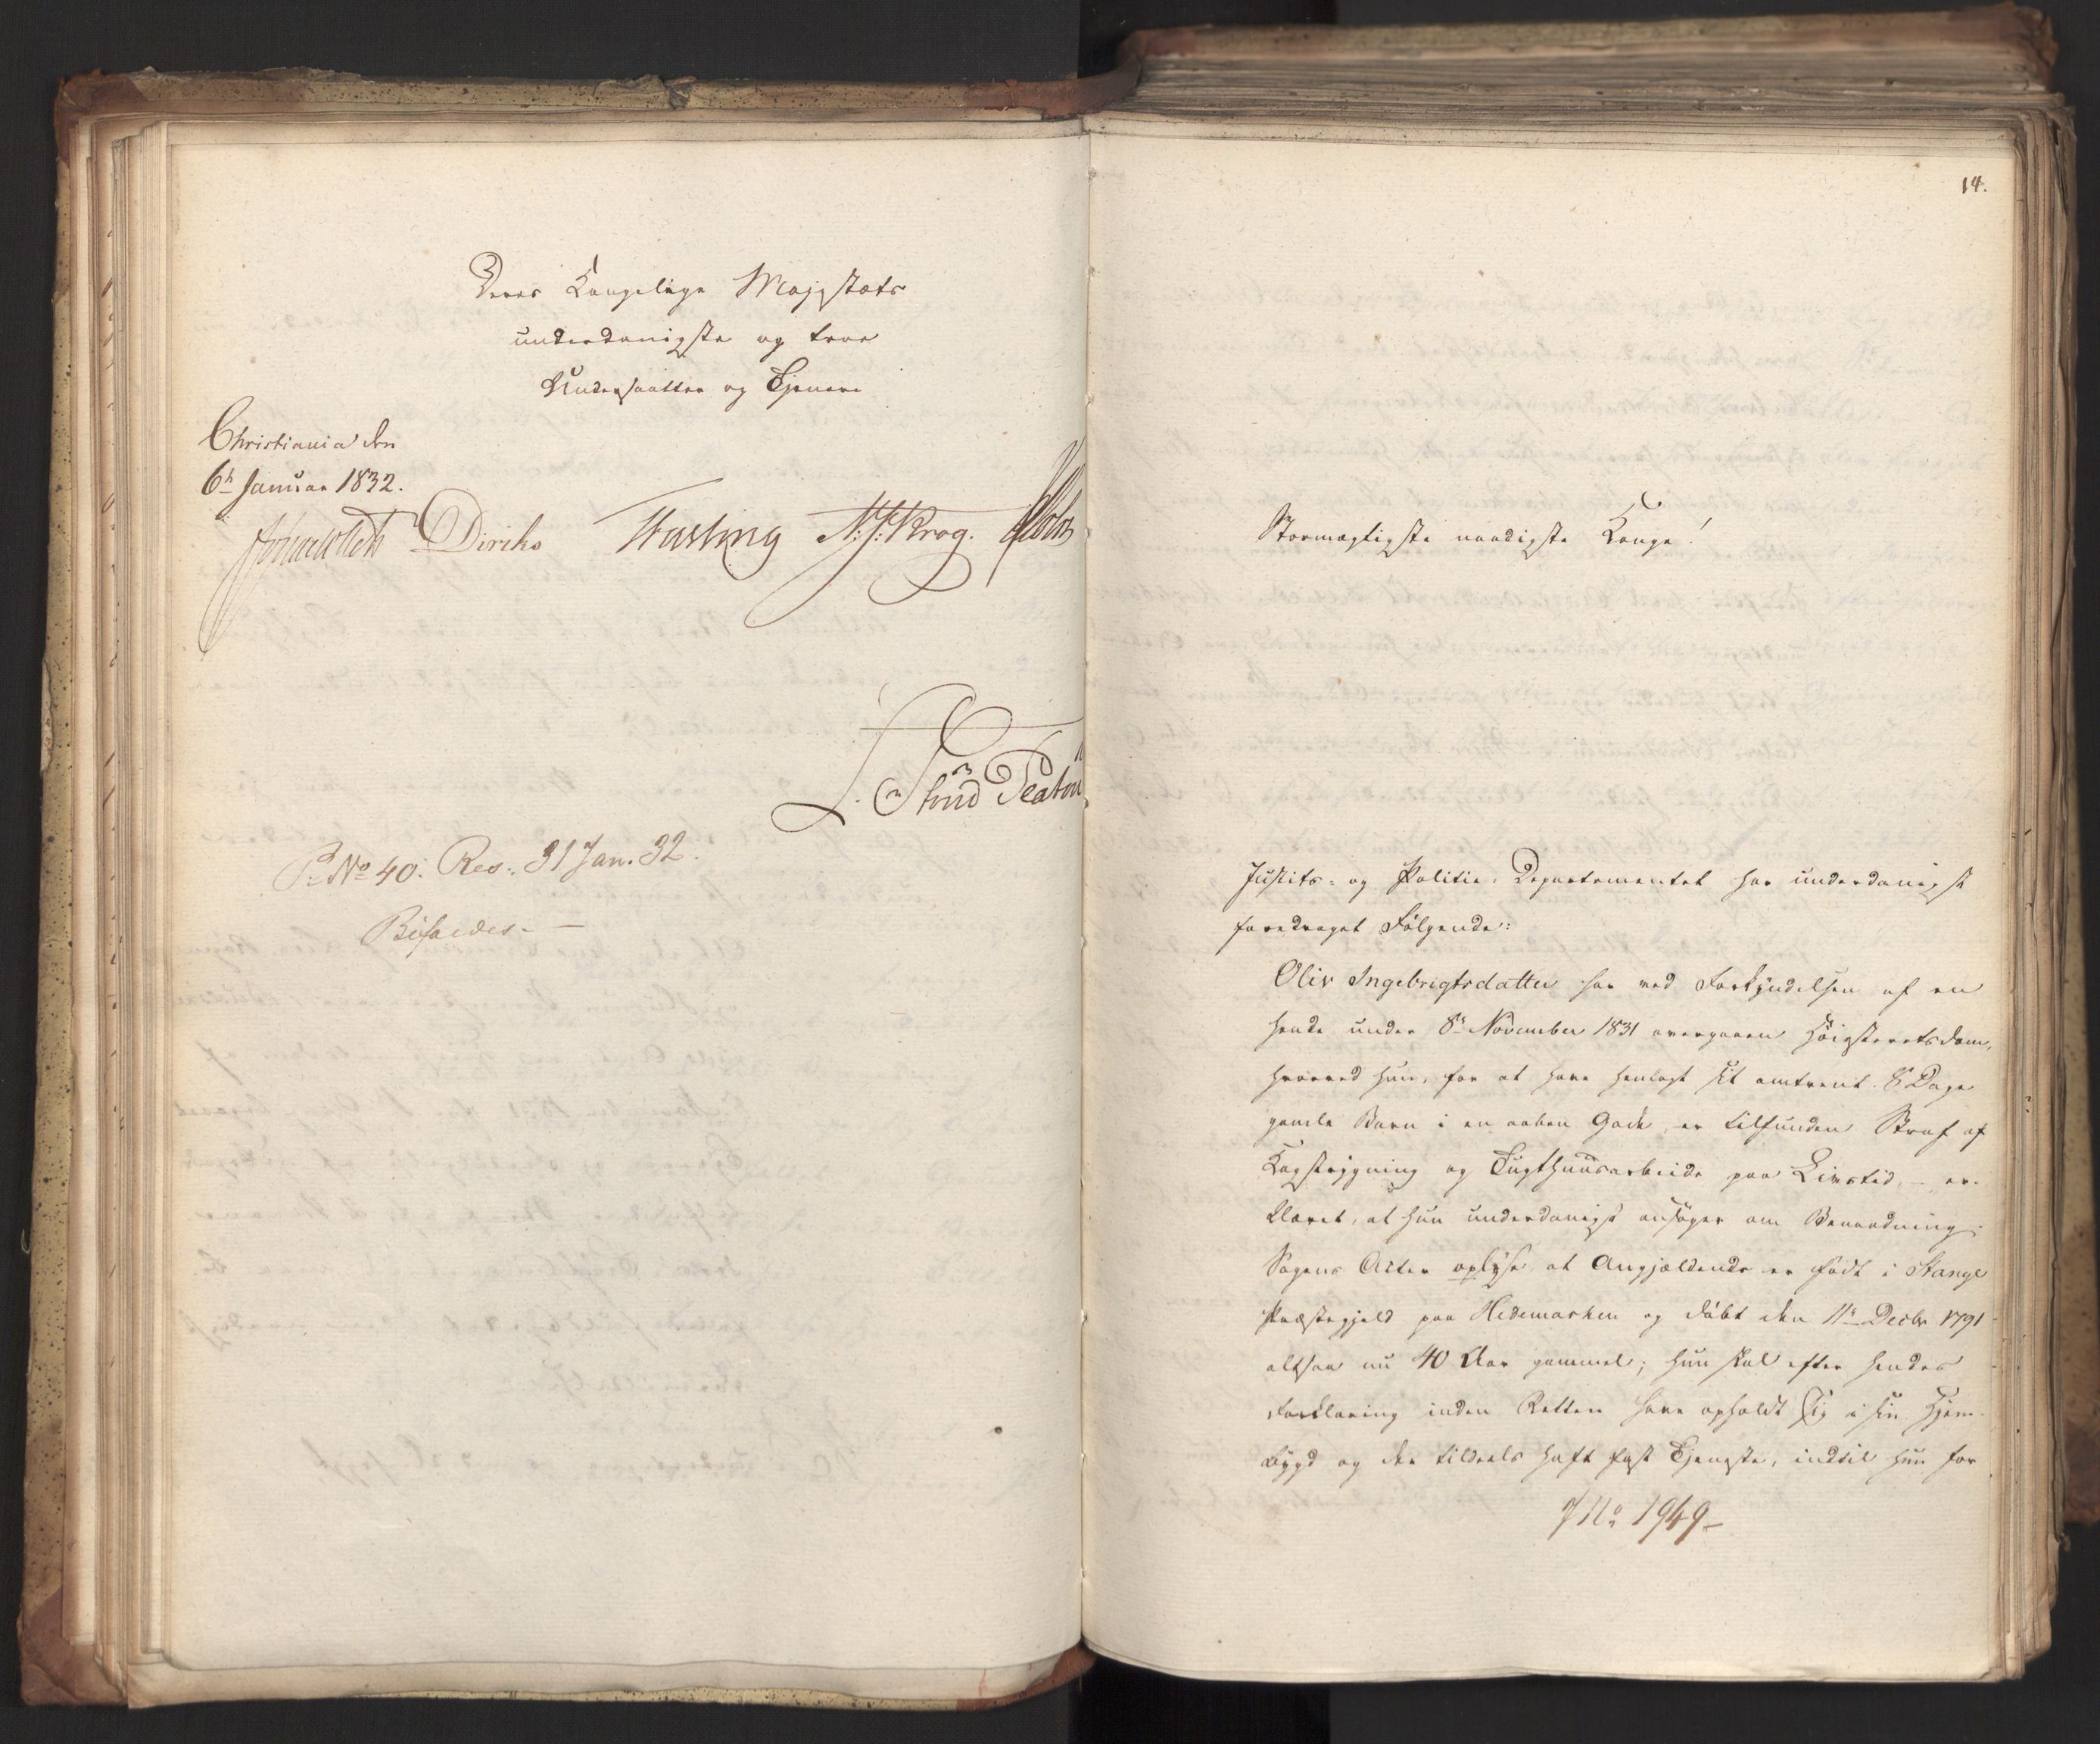 Deres Kongelige Majestæts
underdanigste og troe
Undersaatter og Tjenere
Christiania den
6te Januar 1832.
Diriks N: J: Krog.
P: No 40. Res: 31 Jan. 32.
Bifaldes. —
14.
Stormægtigste naadigste Konge!
Justits- og Politie-Departementet har underdanigst
foredraget Følgende:
Oliv Ingebrigtsdatter har ved Forkyndelsen af en
hende under 8de November 1831 overgaaen Høiesteretsdom,
hvorved hun, for at have henlagt sit omtrent 8 Dage
gamle Barn i en aaben Gade, er tilfunden Straf af
Kagstrygning og Tugthuusarbeide paa Livstid, – er-
klæret, at hun underdanigst ansøger om Benaadning.
Sagens Acter oplyse, at Angjældende er født i Stange
Præstegjeld paa Hedemarken og døbt den 11te Decbr 1791
altsaa nu 40 Aar gammel; hun skal efter hendes
Forklaring inden Retten have opholdt sig i sin Hjem-
bygd og der tildeels havt fast Tjeneste, indtil hun for
No 1949–